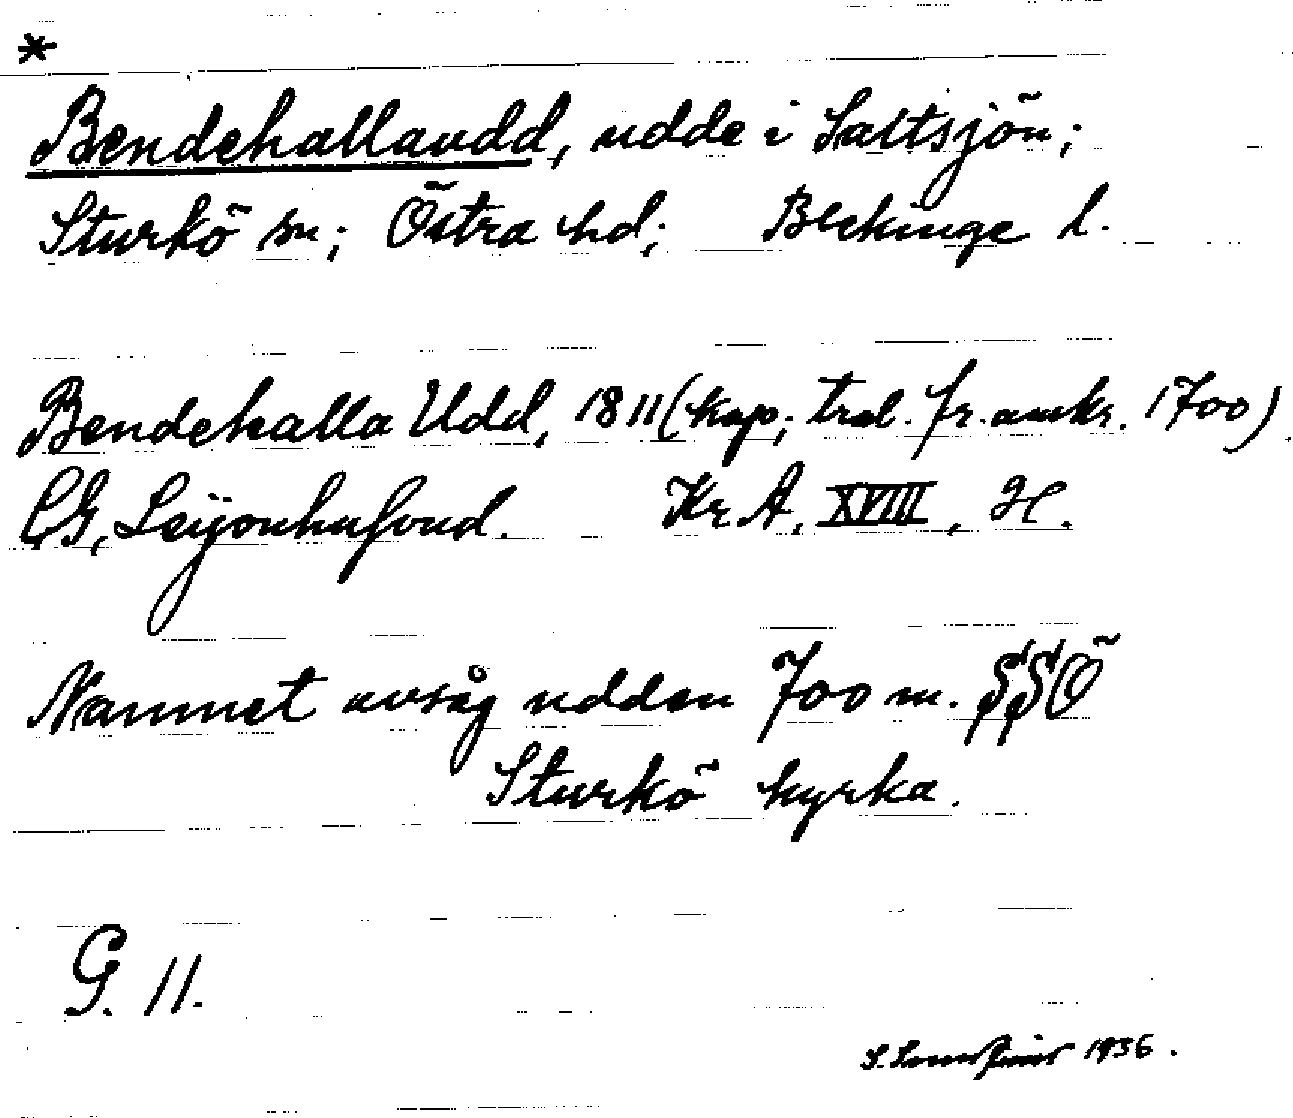 *
Bendehallaudd, udde i Saltsjön;
Sturkö sn; Östra hd; Blekinge l.
Bendehalla Udd, 1811 (kop; tral. fr. omkr. 1700)
CG, Leijonhufvud. Kr A. XVIII, H.
Namnet avsåg udden 700 m. SSÖ
Sturkö kyrka.
G. 11.
S. 1936.